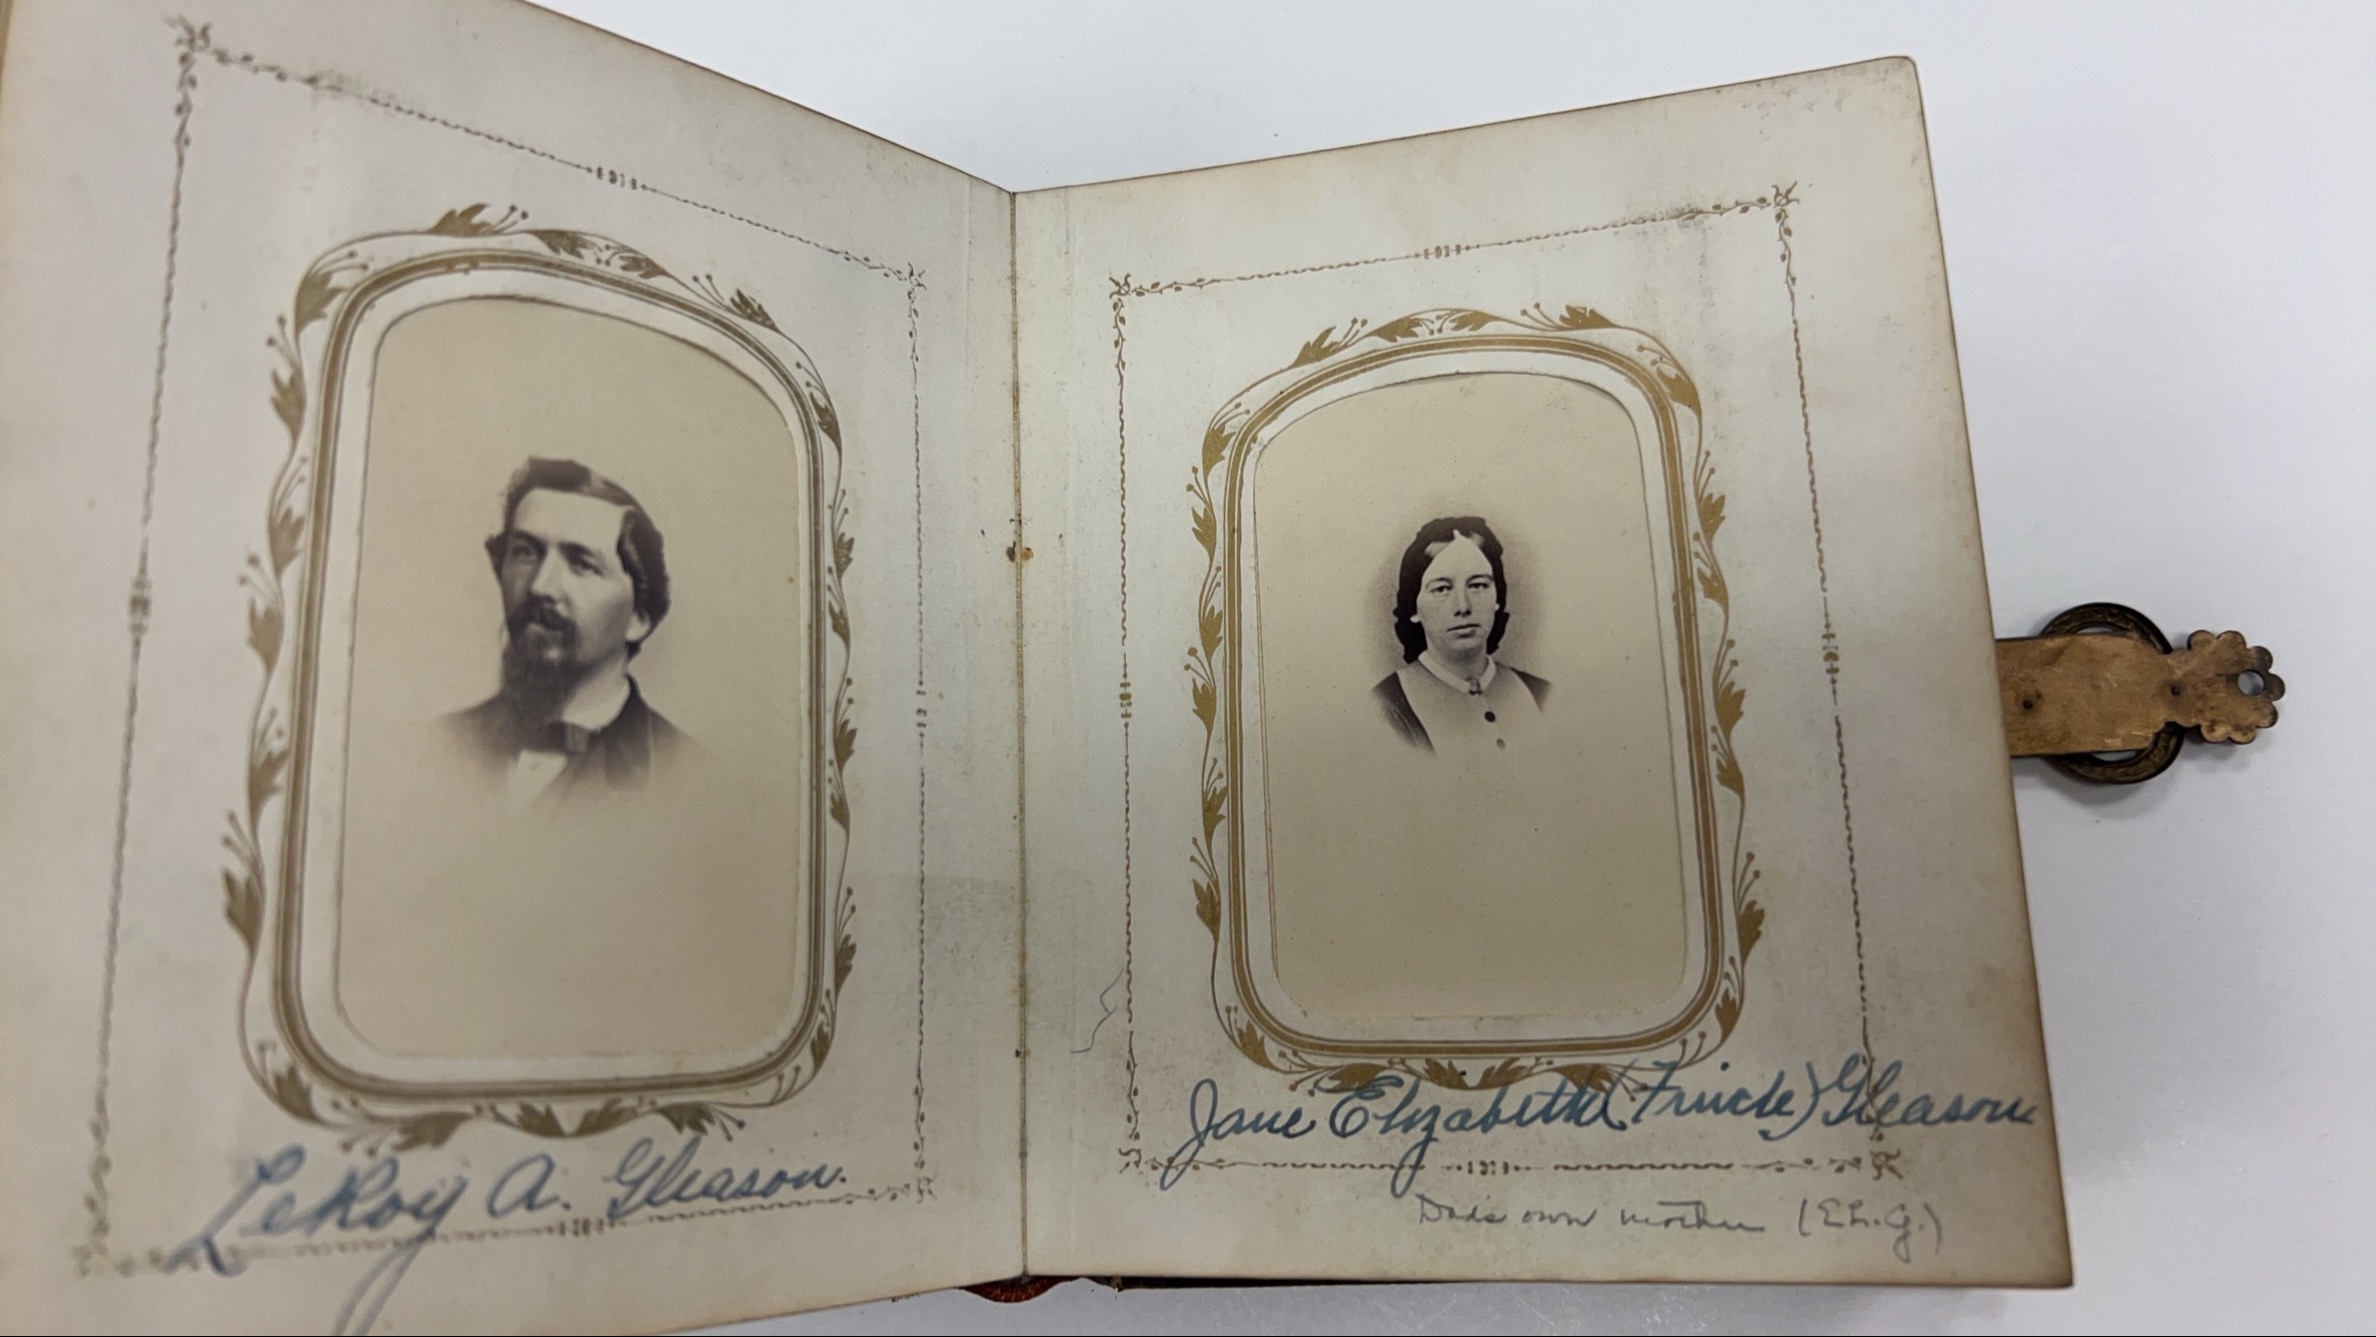 LeRoy A. Gleason.
Jane Elizabeth (Fruide) Gleason
Dad's own mother (E.L.G.)